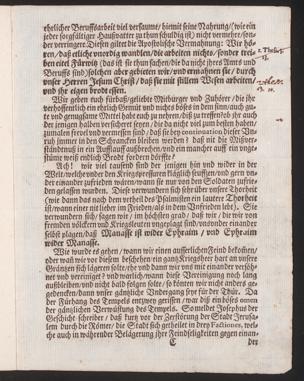 ehrlicher Beruffsarbeit viel versaume/ hiemit seine Nahrung/ (wie ein
jeder sorgfältiger Haußvatter zu thun schuldig ist) nicht vermehre/ son-
der verringere. Diesen giltet die Apostolische Vermahnung: Wir hö-
ren/ daß etliche unordig wandlen/ die arbeiten nichts/ sonder trei-
ben eitel Fürwitz (das ist sie thun sachen/ die da nicht ihres Amts und
Beruffs sind) solchen aber gebieten wir/ und ermahnen sie/ durch
unser Herren Jesum Christ/ daß sie mit stillem Wesen arbeiten/
und ihr eigen brodt essen.
Wir beten euch fürbaß/ geliebte Mitbürger und Zuhörer/ die ihr
verhoffentlich ein ehrlich Gemüt und wider böses in dem sinn/ auch gu-
te und gemäßigte Mittel habt euch zu nehren/ daß
der jenigen halben versicheret seyen/ die da nicht viel zu
zumalen frevel und vermessen sind/ daß sie bey continuation dieser Un-
ruh immer in den Schrancken bleiben werden? daß nit die Mißver-
ständnuß in ein Aufflauff außbrechen/ und ein mancher auff ein unge-
stüme weiß endlich Brodt fordern dörffte?
Ach! wie viel tausend sind der jenigen hin und wider in der
Welt/ welche under den Kriegspressuren kläglich seufftzen/ und gern un-
der einander zufrieden wären/ wann sie nur von den Soldaten zufrie-
den gelassen wurden. Diese verwundern sich sehr über unsere Thorheit
(wie dann das nach dem urtheil des Psalmisten ein lautere Thorheit
ist/ wann einer mit lieber im Frieden/ als in Unfrieden lebt). Sie
verwundern sich/ sagen wir/ im höchsten grad/ daß wir/ die wir von
frembden völckern und Kriegsleuten ungeplagt sind/ uns under einander
selbst plagen/ daß Manasse ist wider Ephraim/ und Ephraim
wider Manasse.
Wie wurde es gehen/ wann wir einen ausserlichen Feind bekomen/
oder was wir vor diesem beschehen ein gantz Kriegsheer hart an unsere
Gräntzen sich lägeren solte/ ehe und dann wir uns mit einander versöh-
net und vereiniget? und warlich/ wann diese Vereinigung noch lang
außbleiben/ und nicht bald folgen solte/ so könten wir nicht anders ge-
gedencken/ ohne unser gäntzliche Undergang seye für der Thür. Da
der Fürhang des Tempels entzwey gerissen/ war diß ein böses omen
der gäntzlichen Verwüstung des Tempels. So meldet Josephus der
Geschicht schreiber/ daß kurtz vor der Zerstörung der Stadt Jerusa-
lem durch die Römer/ die Stadt sich getheilet in drey Factiones, wel-
che auch in währender Belägerung ihre Feindseligkeiten gegen einan-
C der